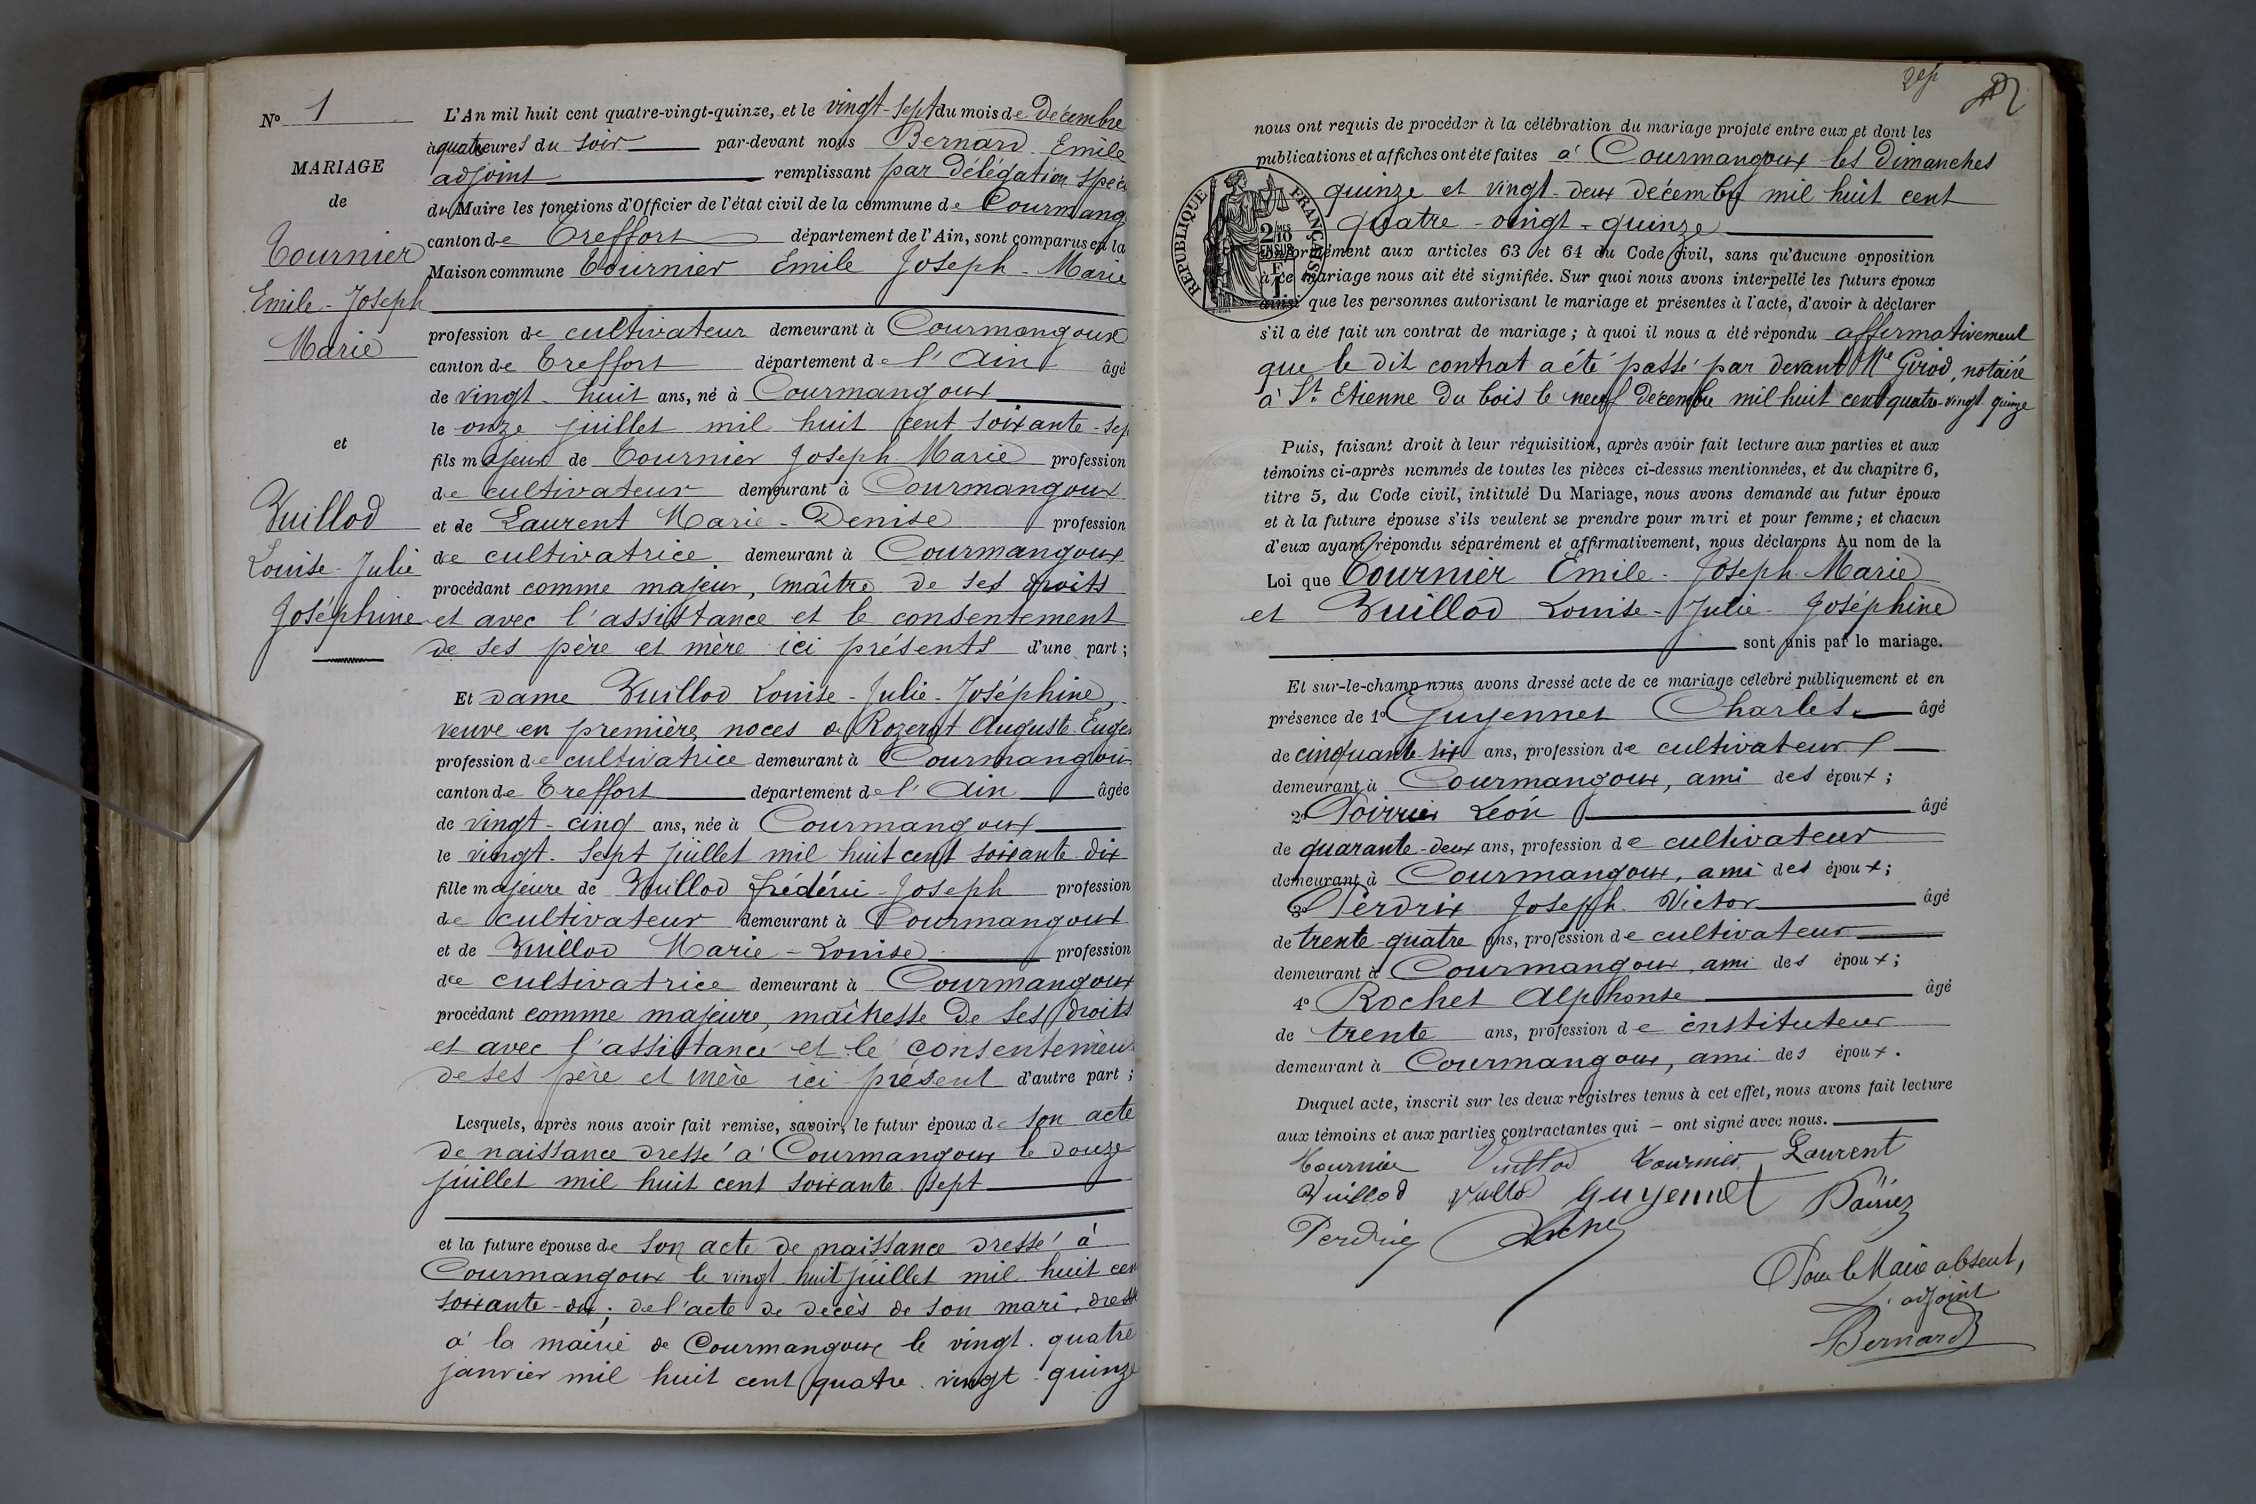 N° 1
MARIAGE
de
Tournier
Emile-Joseph
Marie
et
Vuillod
Louise-Julie
Joséphine
L'An mil huit cent quatre-vingt-quinze, et le vingt-sept du mois de Décembre
à quatre heures du soir par-devant nous Bernard Emile
adjoint remplissant par Délégation
du Maire les fonctions d'Officier de l'état civil de la commune de
canton de Treffort département de l'Ain, sont comparus en la
Maison commune Tournier Emile Joseph-Marie
profession de cultivateur demeurant à Courmangoux
canton de Treffort département de l'Ain âgé
de vingt-huit ans, né à Courmangoux
le onze juillet mil huit cent soixante-sep
fils majeur de Tournier Joseph Marie profession
de cultivateur demeurant à Courmangoux
et de Laurent Marie-Denise profession
de cultivatrice demeurant à Courmangoux
procédant comme majeur, maître de ses droits
et avec l'assistance et le consentement
de ses père et mère ici présents d'une part ;
Et dame Vuillod Louise-Julie-Joséphine,
veuve en première noces de Auguste
profession de cultivatrice demeurant à Courmangou
canton de Treffort département de l'Ain âgée
de vingt-cinq ans, née à Courmangoux
le vingt-sept juillet mil huit cent soixante dix
fille majeure de Vuillod frédéric-Joseph profession
de cultivateur demeurant à Courmangoux
et de Vuillod Marie-Louise profession
de cultivatrice demeurant à Courmangoux
procédant comme majeure, maîtresse de ses droits
et avec l'assistance et le consentement
de ses père et mère ici présent d'autre part ;
Lesquels, après nous avoir fait remise, savoir, le futur époux de son acte
de naissance dressé à Courmangoux le douze
juillet mil huit cent soixante sept
et la future épouse de son acte de naissance dressé à
Courmangoux le vingt huit juillet mil huit cen
soixante-dix ; de l'acte de décès de son mari, dressé
à la mairie de Courmangoux le vingt-quatre
janvier mil huit cent quatre-vingt-quinze
nous ont requis de procéder à la célébration du mariage projeté entre eux et dont les
publications et affiches ont été faites à Courmangoux les dimanches
quinze et vingt-deux décembre mil huit cent
quatre-vingt-quinze
RÉPUBLIQUE FRANÇAISE
2/10
EN SUR
conformément aux articles 63 et 64 du Code civil, sans qu'aucune opposition
à ce mariage nous ait été signifiée. Sur quoi nous avons interpellé les futurs époux
ainsi que les personnes autorisant le mariage et présentes à l'acte, d'avoir à déclarer
s'il a été fait un contrat de mariage ; à quoi il nous a été répondu affirmativement
que le dit contrat a été passé par devant Me Girod, notaire
à St Etienne du bois le neuf décembre mil huit cent quatre-vingt quinze
Puis, faisant droit à leur réquisition, après avoir fait lecture aux parties et aux
témoins ci-après nommés de toutes les pièces ci-dessus mentionnées, et du chapitre 6,
titre 5, du Code civil, intitulé Du Mariage, nous avons demandé au futur époux
et à la future épouse s'ils veulent se prendre pour mari et pour femme ; et chacun
d'eux ayant répondu séparément et affirmativement, nous déclarons Au nom de la
Loi que Tournier Emile-Joseph-Marie
et Vuillod Louise-Julie-Joséphine
sont unis par le mariage.
Et sur-le-champ nous avons dressé acte de ce mariage célébré publiquement et en
présence de 1° Guyennet Charles âgé
de cinquante-six ans, profession de cultivateur
demeurant à Courmangoux, ami des époux ;
2° Poirrier Léon âgé
de quarante-deux ans, profession de cultivateur
demeurant à Courmangoux, ami des époux ;
3° Perdrix Joseph Victor âgé
de trente-quatre ans, profession de cultivateur
demeurant à Courmangoux, ami des époux ;
4° Rochet Alphonse âgé
de trente ans, profession de instituteur
demeurant à Courmangoux, ami des époux.
Duquel acte, inscrit sur les deux registres tenus à cet effet, nous avons fait lecture
aux témoins et aux parties contractantes qui — ont signé avec nous.
Tournier Vuillod Tournier Laurent
Vuillod Guyennet
Pour le Maire absent,
L'adjoint
Bernard